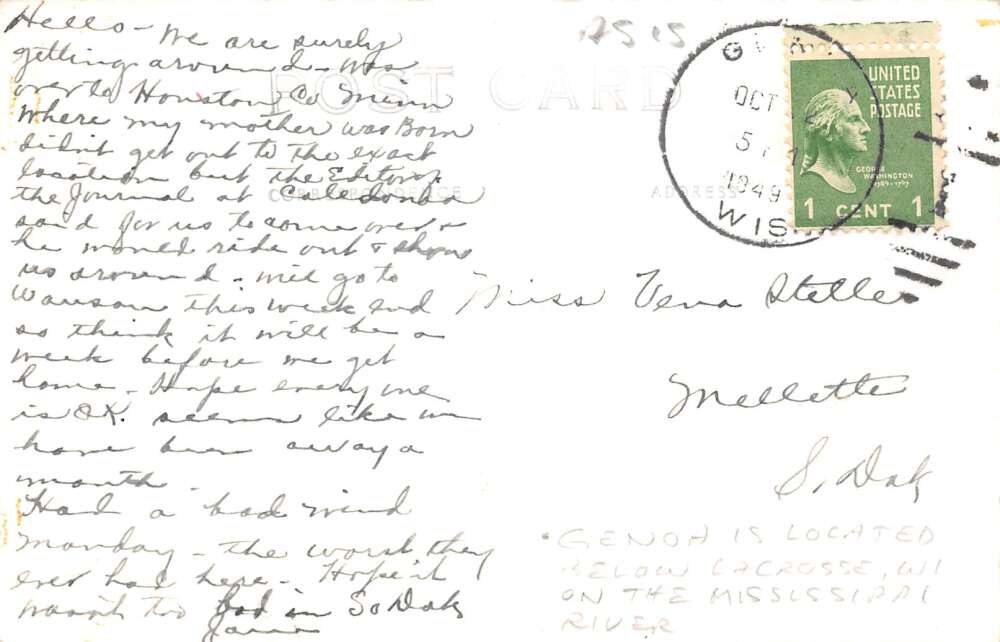 Hello - We are surely
getting around - was
over to Houston Co Minn
where my mother was Born
didn't get out to the exact
location but the Editor of
the Journal at Caledonia
said for us to come over &
he would ride out & show
us around - will go to
Wausau this week end
so think it will be a
week before we get
home - Hope every one
is OK. seems like we
have been away a
month -
Had a bad wind
Monday - the worst they
ever had here - Hope it
wasn't too bad in So Dak
POST CARD
CORRESPONDENCE
ADDRESS
OCT
1949
WIS.
UNITED
STATES
POSTAGE
GEORGE
WASHINGTON
1789-1797
1 CENT 1
Miss Vena Steller
Mellette
S. Dak
• GENOA IS LOCATED
BELOW LACROSSE, WI
ON THE MISSISSIPPI
RIVER